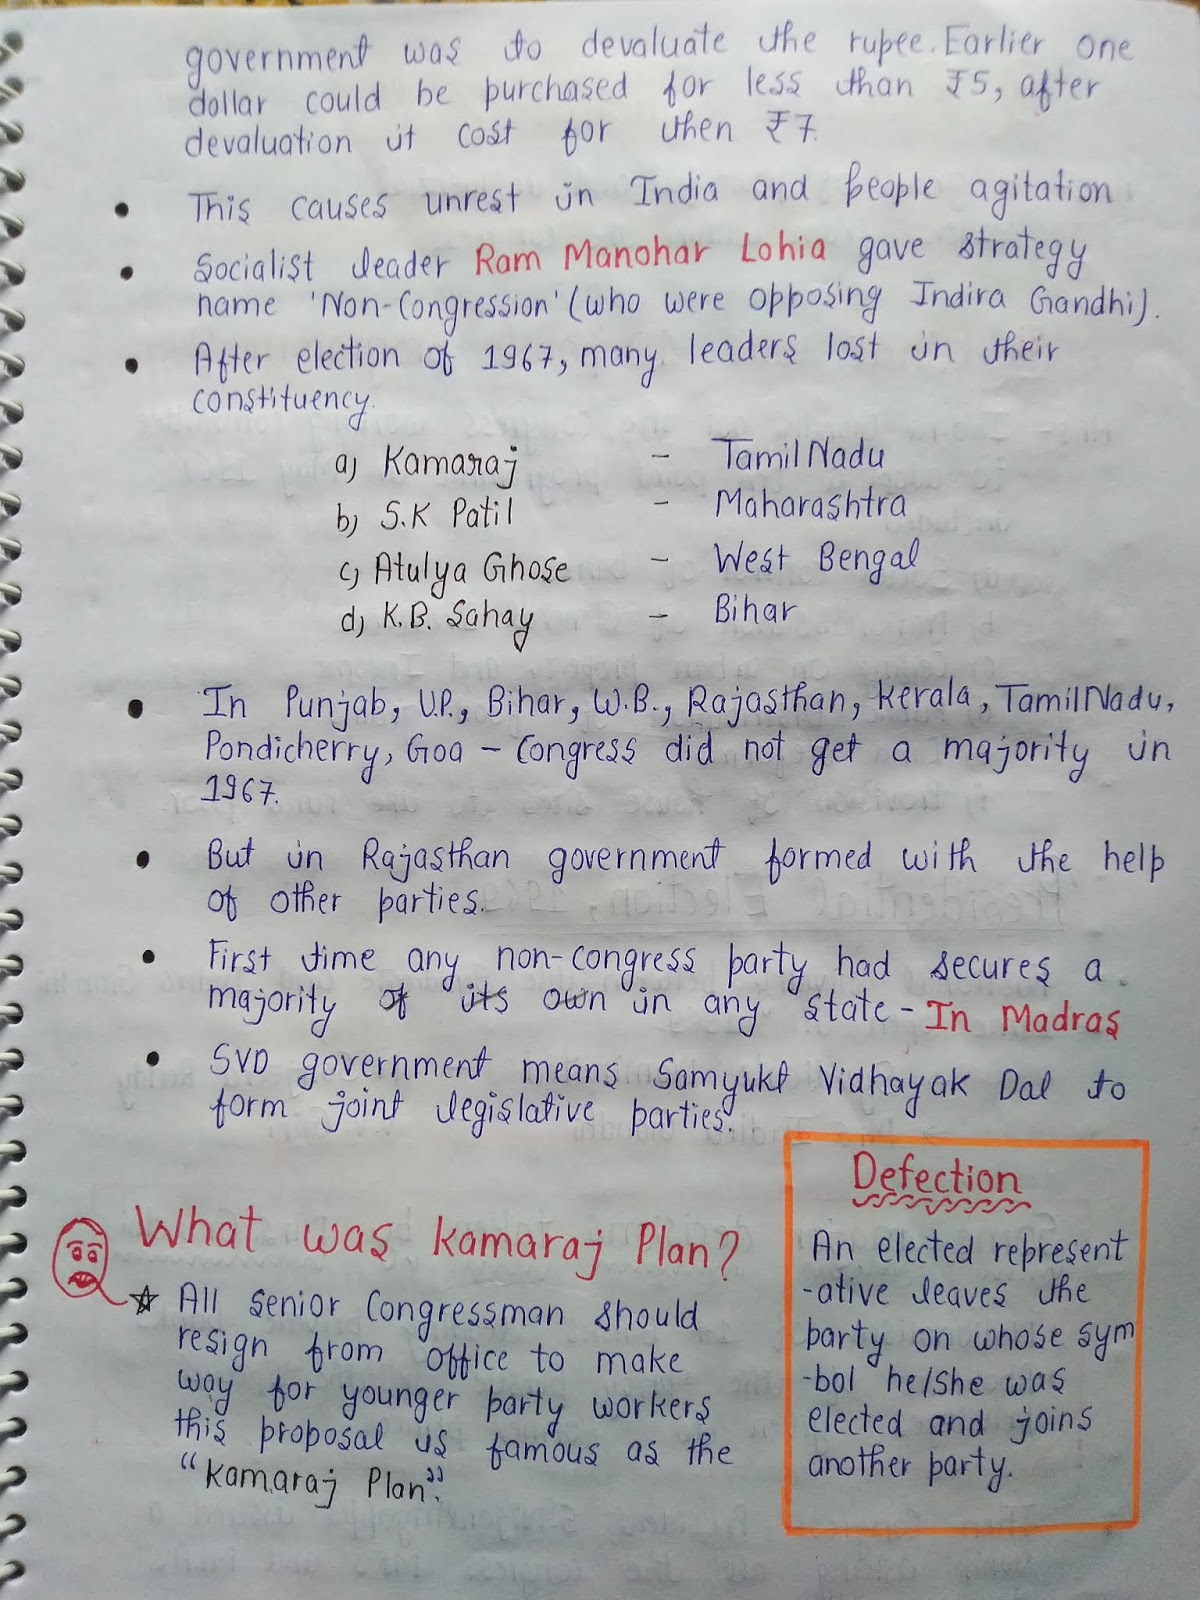 government was to devaluate the rupee. Earlier one
dollar could be purchased for less than ₹5, after
devaluation it cost for then ₹7.
• This causes unrest in India and people agitation
• Socialist leader Ram Manohar Lohia gave strategy
name 'Non-Congression' (who were opposing Indira Gandhi).
• After election of 1967, many leaders lost in their
constituency.
a) Kamaraj - Tamil Nadu
b) S.K Patil - Maharashtra
c) Atulya Ghose - West Bengal
d) K.B. Sahay - Bihar
• In Punjab, U.P., Bihar, W.B., Rajasthan, Kerala, Tamil Nadu,
Pondicherry, Goa - Congress did not get a majority in
1967.
• But in Rajasthan government formed with the help
of other parties.
• First time any non-congress party had secures a
majority of its own in any state - In Madras
• SVD government means Samyukt Vidhayak Dal to
form joint legislative parties.
What was Kamaraj Plan?
☆ All senior Congressman should
resign from office to make
way for younger party workers
this proposal is famous as the
"Kamaraj Plan".
Defection
An elected represent
-ative leaves the
party on whose sym
-bol he/she was
elected and joins
another party.